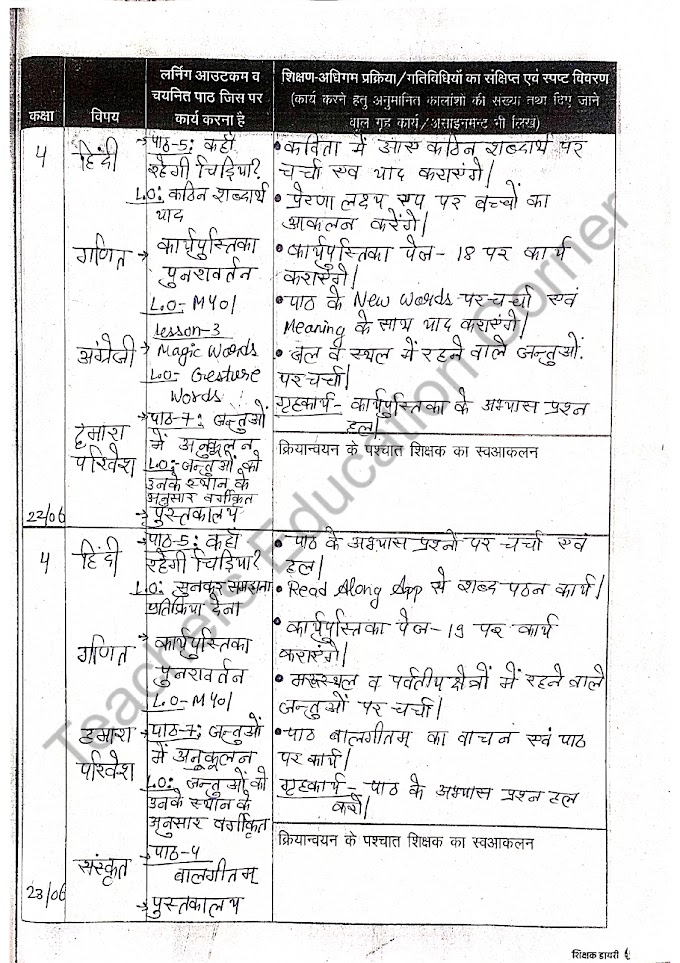 कक्षा
विषय
लर्निंग आउटकम व
चयनित पाठ जिस पर
कार्य करना है
शिक्षण-अधिगम प्रक्रिया/गतिविधियों का संक्षिप्त एवं स्पष्ट विवरण
(कार्य करने हेतु अनुमानित कालांशों की संख्या तथा दिए जाने
वाले गृह कार्य/असाइनमेन्ट भी लिखें)
4
हिंदी
पाठ-5: कहाँ
रहेगी चिड़िया?
L.O: कठिन शब्दार्थ
याद
गणित
कार्यपुस्तिका
पुनरावर्तन
L.O- M401
अंग्रेजी
Lesson-3
Magic Words
L.O- Gesture
Words
हमारा
परिवेश
पाठ-7: जन्तुओं
में अनुकूलन
L.O:- जन्तुओं को
उनके स्थान के
अनुसार वर्गीकृत
पुस्तकालय
22/06
• कविता में आए कठिन शब्दार्थ पर
चर्चा एवं याद कराएंगे|
• प्रेरणा लक्ष्य एप पर बच्चों का
आकलन करेंगे|
• कार्यपुस्तिका पेज- 18 पर कार्य
कराएंगे|
• पाठ के New Words पर चर्चा एवं
Meaning के साथ याद कराएंगे|
• जल व स्थल में रहने वाले जन्तुओं
पर चर्चा|
गृहकार्य- कार्यपुस्तिका के अभ्यास प्रश्न
हल|
क्रियान्वयन के पश्चात शिक्षक का स्वआकलन
4
हिंदी
पाठ-5: कहाँ
रहेगी चिड़िया?
L.O: सुनकर समझना
प्रतिक्रिया देना
गणित
कार्यपुस्तिका
पुनरावर्तन
L.O- M401
हमारा
परिवेश
पाठ-7: जन्तुओं
में अनुकूलन
L.O: जन्तुओं को
उनके स्थान के
अनुसार वर्गीकृत
संस्कृत
पाठ-4
बालगीतम्
पुस्तकालय
23/06
• पाठ के अभ्यास प्रश्नों पर चर्चा एवं
हल|
• Read Along App से शब्द पठन कार्य|
• कार्यपुस्तिका पेज- 19 पर कार्य
कराएंगे|
• मरुस्थल व पर्वतीय क्षेत्रों में रहने वाले
जन्तुओं पर चर्चा|
• पाठ बालगीतम् का वाचन एवं पाठ
पर कार्य|
गृहकार्य- पाठ के अभ्यास प्रश्न हल
करो|
क्रियान्वयन के पश्चात शिक्षक का स्वआकलन
शिक्षक डायरी
Teachers Education Corner